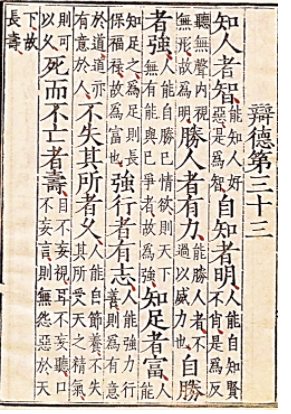 辯德第三十三
知人者智能知人好惡是為智自知者明人能自知賢不肖是為反
聽無聲內視無形故為明勝人者有力能勝人者不過以威力也自勝
者強人能自勝已情欲則天下無有能與已爭者故為強知足者富人能
知足之為足則長保福祿故為富也強行者有志人能強力行善則為有意
於道道亦有意於人不失其所者久人能自節養不失其所受天之精氣
則可以久死而不亡者壽目不妄視耳不妄聽口不妄言則無怨惡於天
下故長壽